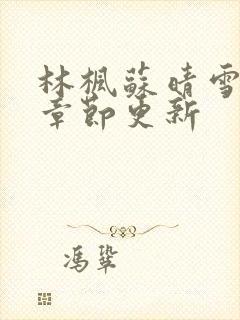 林楓蘇晴雪
章節更新
馮鞏